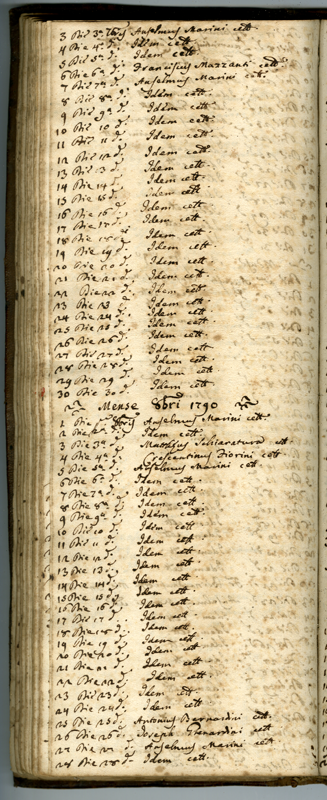 3 Die 3ª 7bris Anselmus Marini cett.
4 Die 4ª dº Idem cett.
5 Die 5ª dº Idem cett.
6 Die 6ª dº Franciscus Mazzanti cett.
7 Die 7ª dº Anselmus Marini cett.
8 Die 8ª dº Idem cett.
9 Die 9ª dº Idem cett.
10 Die 10 dº Idem cett.
11 Die 11 dº Idem cett.
12 Die 12 dº Idem cett.
13 Die 13 dº Idem cett.
14 Die 14 dº Idem cett.
15 Die 15 dº Idem cett.
16 Die 16 dº Idem cett.
17 Die 17 dº Idem cett.
18 Die 18 dº Idem cett.
19 Die 19 dº Idem cett.
20 Die 20 dº Idem cett.
21 Die 21 dº Idem cett.
22 Die 22 dº Idem cett.
23 Die 23 dº Idem cett.
24 Die 24 dº Idem cett.
25 Die 25 dº Idem cett.
26 Die 26 dº Idem cett.
27 Die 27 dº Idem cett.
28 Die 28 dº Idem cett.
29 Die 29 dº Idem cett.
30 Die 30 dº Idem cett.
Mense 8bri 1790
1 Die pª 8bris Anselmus Marini cett.
2 Die 2ª dº Idem cett.
3 Die 3ª dº Matthæus Schiaratura cett.
4 Die 4ª dº Crescentinus Fiorini cett.
5 Die 5ª dº Anselmus Marini cett.
6 Die 6ª dº Idem cett.
7 Die 7ª dº Idem cett.
8 Die 8ª dº Idem cett.
9 Die 9ª dº Idem cett.
10 Die 10 dº Idem cett.
11 Die 11 dº Idem cett.
12 Die 12 dº Idem cett.
13 Die 13 dº Idem cett.
14 Die 14 dº Idem cett.
15 Die 15 dº Idem cett.
16 Die 16 dº Idem cett.
17 Die 17 dº Idem cett.
18 Die 18 dº Idem cett.
19 Die 19 dº Idem cett.
20 Die 20 dº Idem cett.
21 Die 21 dº Idem cett.
22 Die 22 dº Idem cett.
23 Die 23 dº Idem cett.
24 Die 24 dº Idem cett.
25 Die 25 dº Antonius Bernardini cett.
26 Die 26 dº Joseph Gherardini cett.
27 Die 27 dº Anselmus Marini cett.
28 Die 28 dº Idem cett.